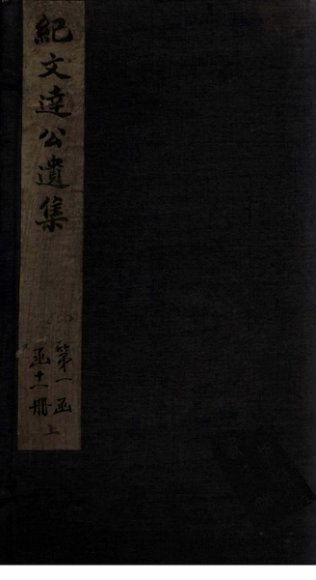 紀文達公遺集
第一函
函十一冊
上